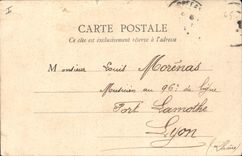 CARTE POSTALE
Ce côté est exclusivement réservé à l'adresse
Monsieur Louis Morénas
Musicien au 96e de Ligne
Fort Lamothe
Lyon
(Rhône)